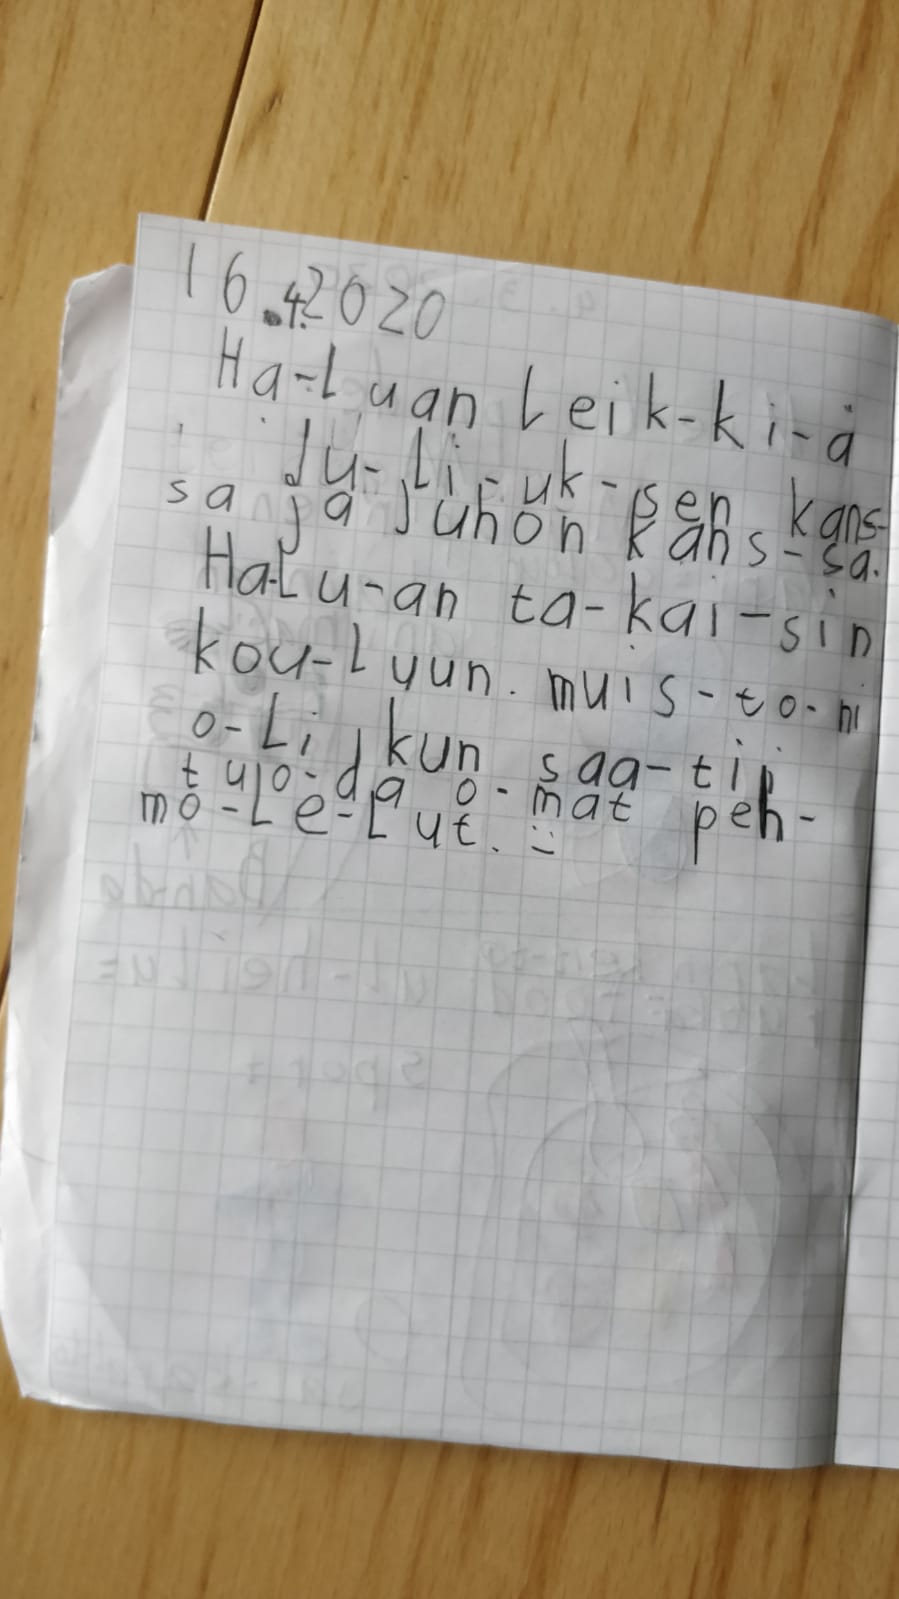 16.4.2020
Ha-Luan Leik-ki-ä
Ju-Li-uk-sen kans-
sa ja Juhon kans-sa.
HaLu-an ta-kai-sin
kou-Luun. muis-to-ni
o-Li, kun saa-tiin
tuo-da o-mat peh-
mo-Le-Lut. :)